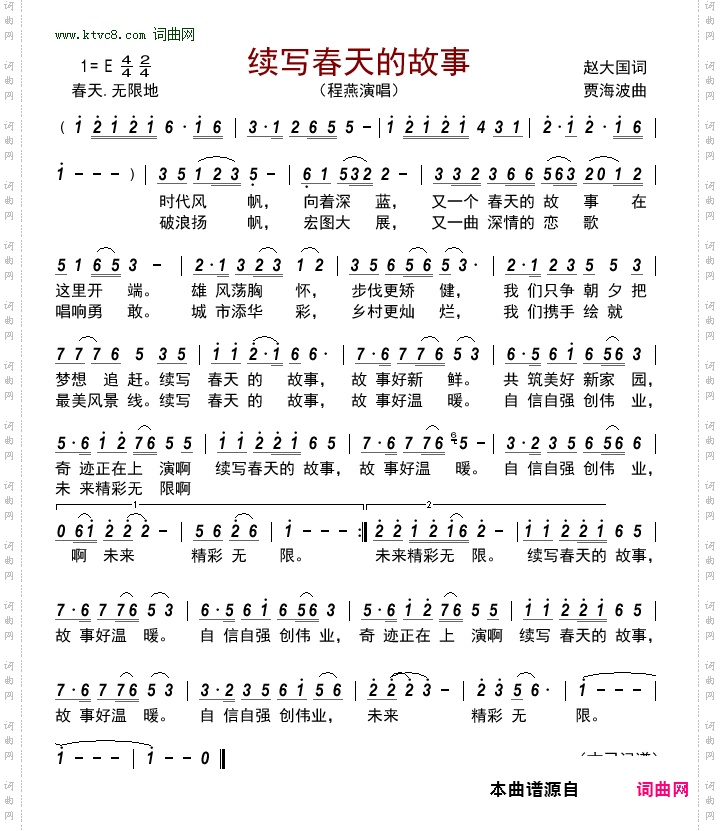 www.ktvc8.com 词曲网
续写春天的故事
1= E 4/4 2/4
赵大国词
春天.无限地
（程燕演唱）
贾海波曲
( 1 2121 6·16 | 3·1 265 5- | 1 2121 4 31 | 2·1 2·16 |
1 - - - ) | 35 123 5 - | 61 532 2 - | 332 366 563 2012 |
时代风 帆， 向着深 蓝， 又一个 春天的 故 事 在
破浪扬 帆， 宏图大 展， 又一曲 深情的 恋 歌
51 65 3 - | 2·1 323 1 2 | 35 656 53· | 2·1 23 5 53 |
这里开 端。 雄 风荡胸 怀， 步伐更矫 健， 我 们只争 朝 夕把
唱响勇 敢。 城 市添华 彩， 乡村更灿 烂， 我 们携手 绘 就
77 76 5 35 | 11 2·1 66· | 7·6 776 53 | 6·5 61 563 |
梦想 追 赶。续写 春天 的 故事， 故 事好新 鲜。 共 筑美好 新家 园，
最美风景 线。续写 春天 的 故事， 故 事好温 暖。 自 信自强 创伟 业，
5·6 12 76 5 | 11 221 65 | 7·6 776 5- | 3·2 356 56 6 |
奇 迹正在上 演啊 续写春天的 故事， 故 事好温 暖。 自 信自强 创伟 业，
未 来精彩无 限啊
1 2
0 61 22 - | 56 26 | 1 - - - :| 22 1216 2 - | 11 221 65 |
啊 未来 精彩 无 限。 未来精彩无 限。 续写春天的 故事，
7·6 776 53 | 6·5 61 563 | 5·6 12 76 5 | 11 221 65 |
故 事好温 暖。 自 信自强 创伟 业， 奇 迹正在 上 演啊 续写 春天的 故事，
7·6 776 53 | 3·2 356 1 56 | 2 223 - | 23 56· | 1 - - - |
故 事好温 暖。 自 信自强 创伟业， 未来 精彩 无 限。
1 - - - | 1 - - 0 ‖
本曲谱源自 词曲网
词曲网